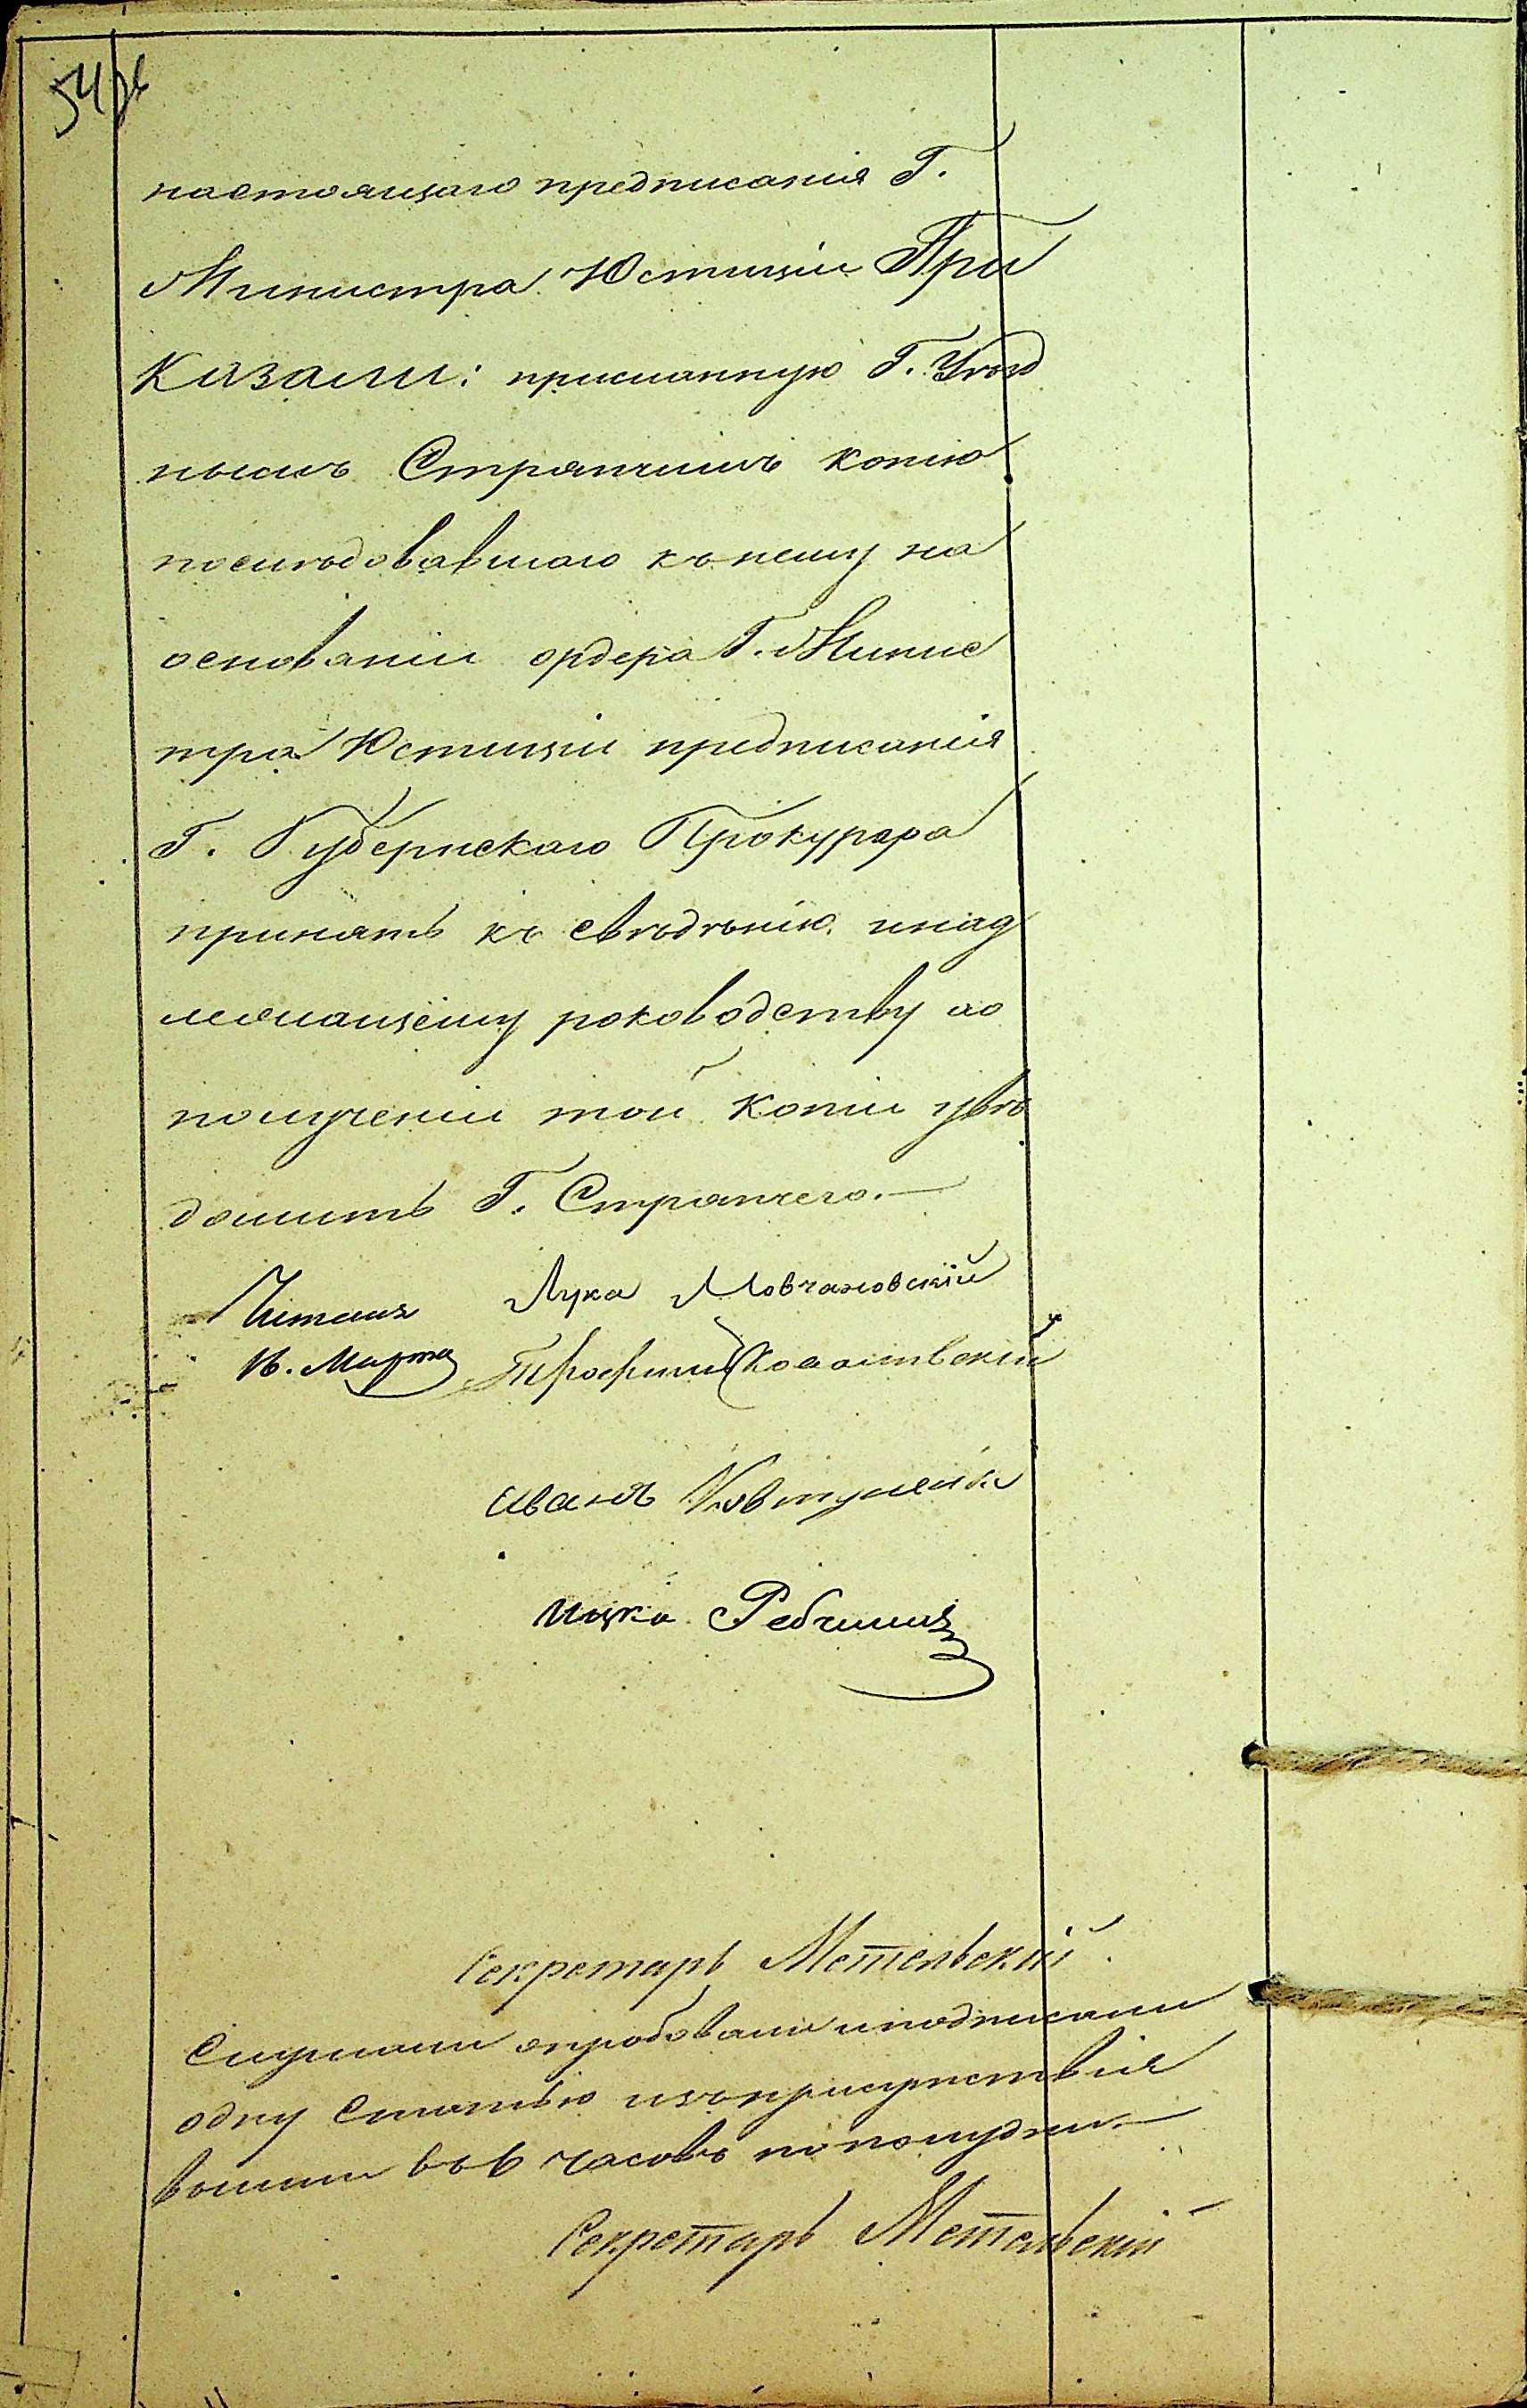 54
настоящаго предписанія Г.
Министра Юстиціи При
казали: присланную Г. Уѣзд
нымъ Стряпчимъ копію
послѣдовавшаго къ нему на
основаніи ордера Г. Минис
тра Юстиціи предписанія
Г. Губернскаго Прокурора
принять къ свѣдѣнію инад
лежащему роководству ао
полученіи той копіи увѣ
домить Г. Стряпчего.—
Лука Мовчановскій
Читалъ
И. Марта Трофимъ
Иванъ Ковтуненко
Ицко
Секретарь Метельскій
Слушали опробовали иподписали
одну Статью изъприсутствія
вышли въ 6 часовъ пополудни.—
Секретарь Метельскій